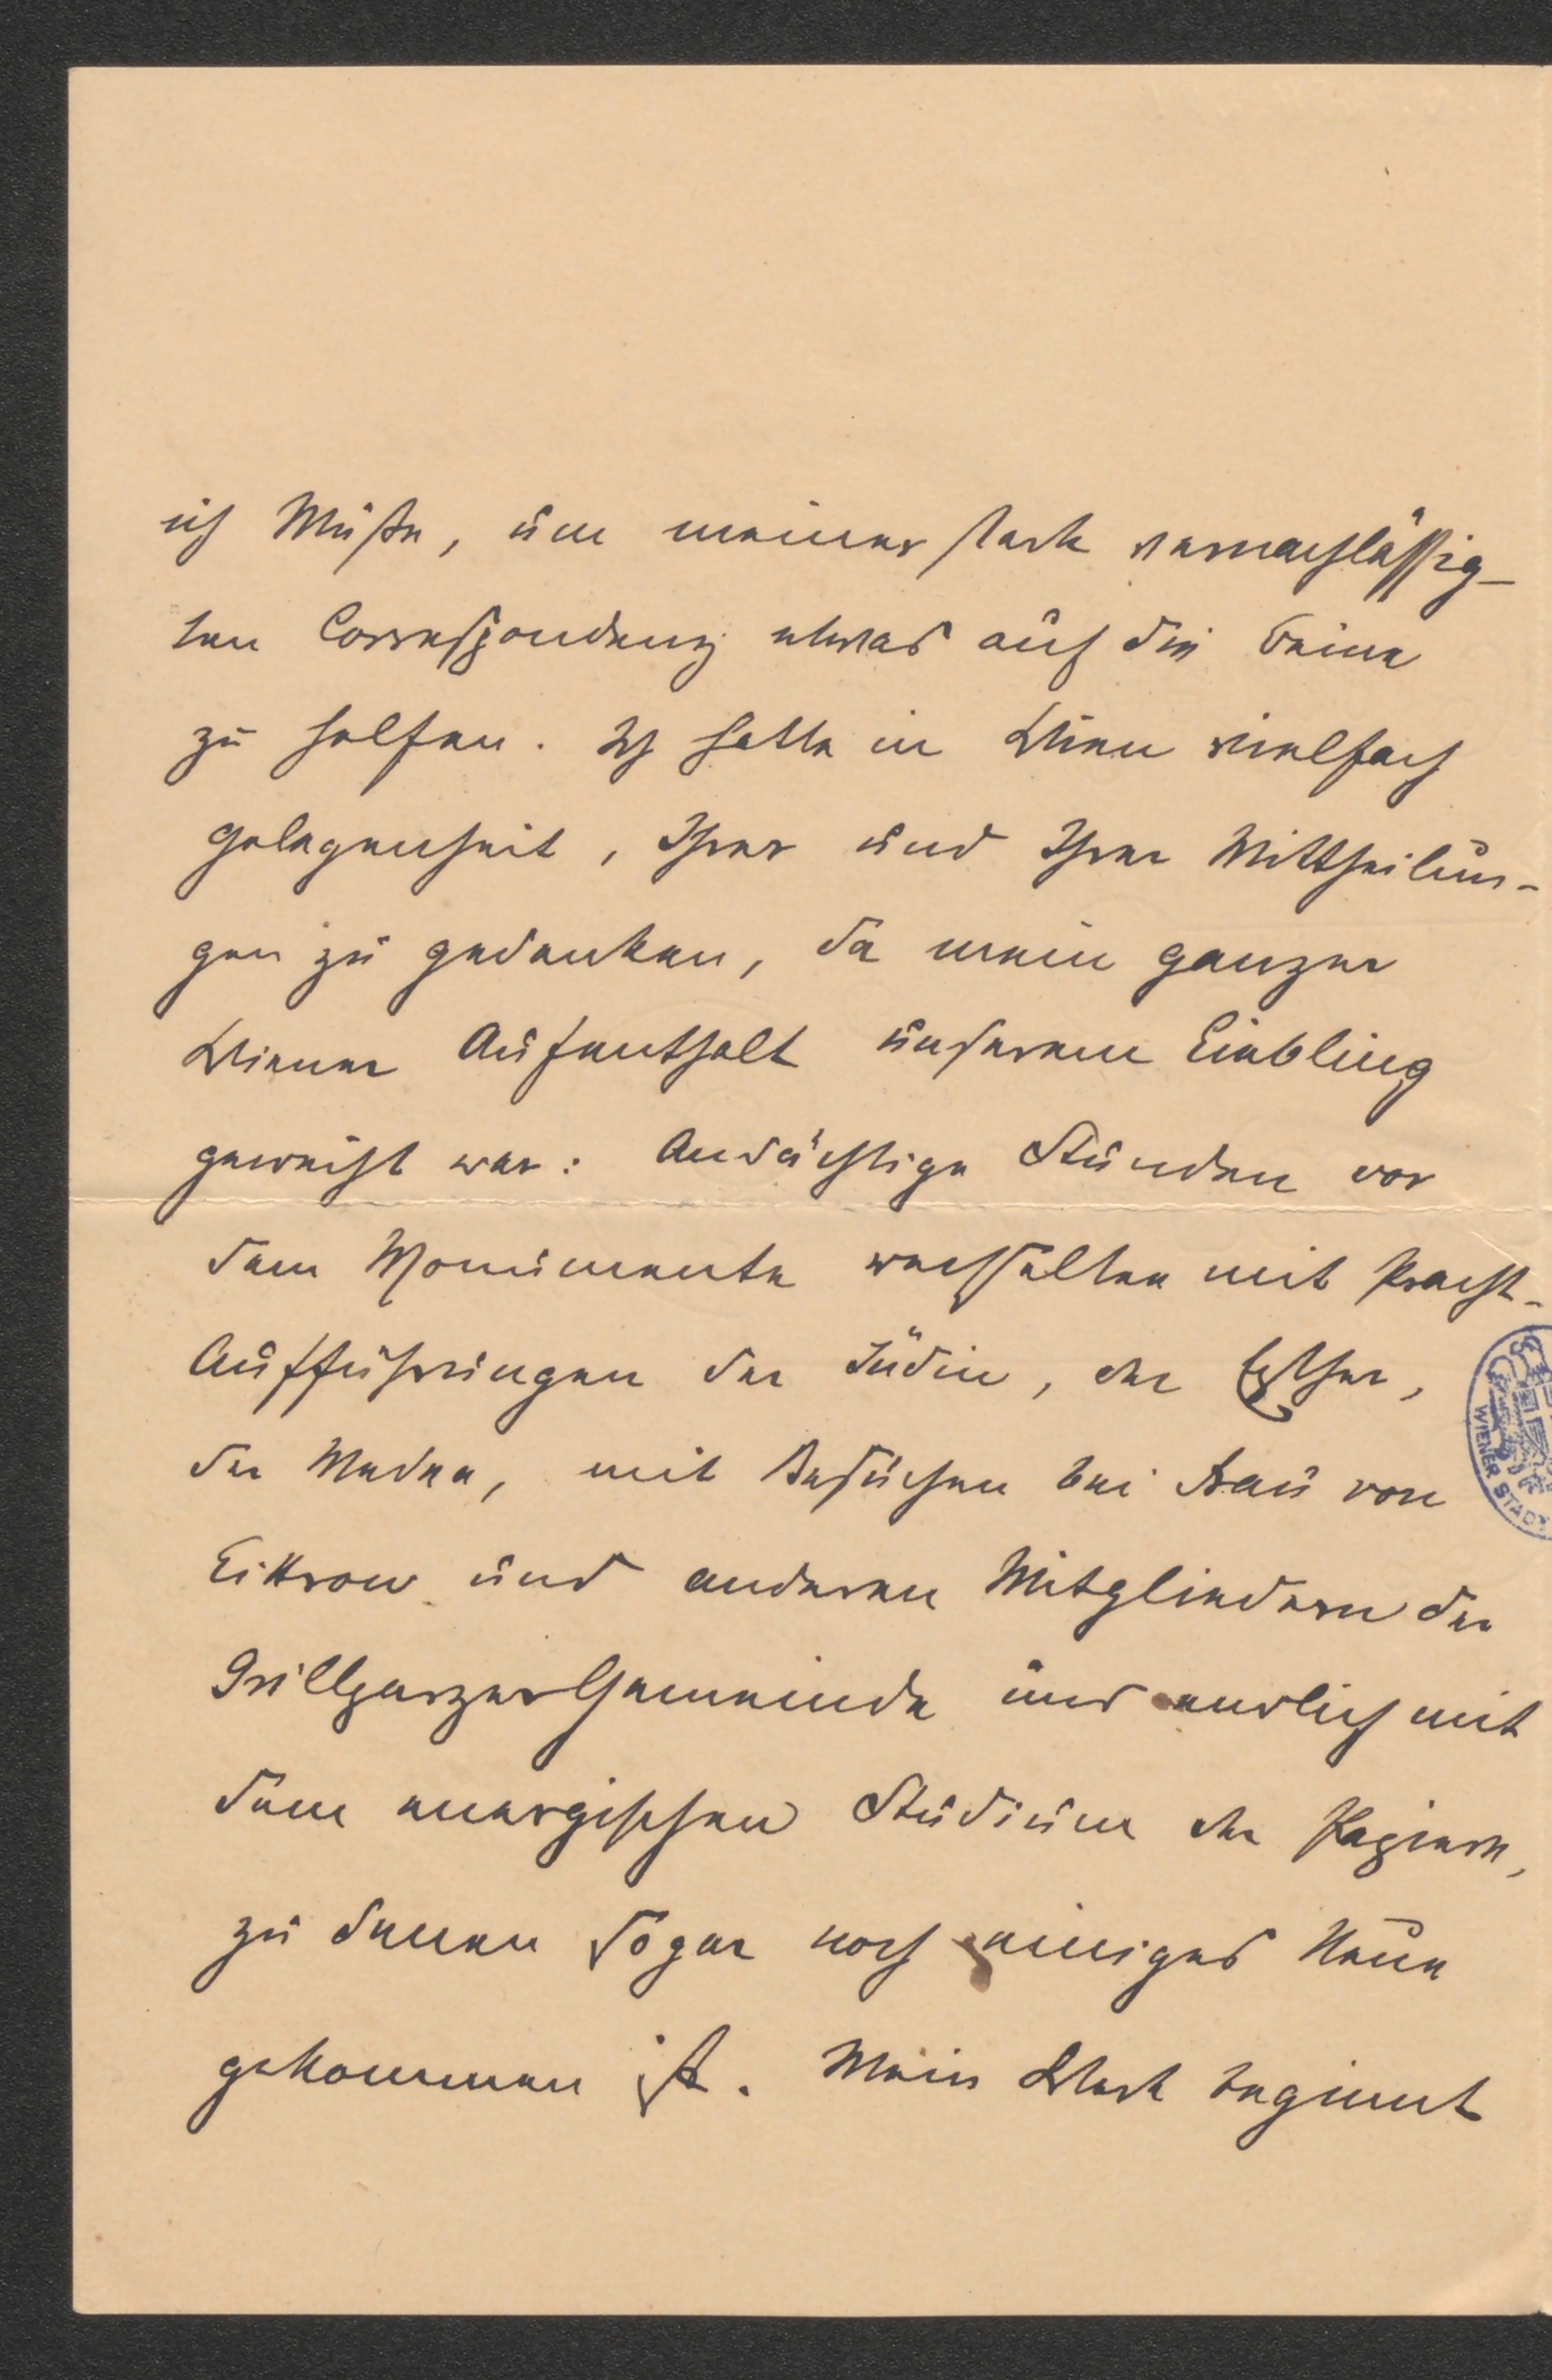 ich Muße, um meiner stark vernachlässig-
ten Correspondenz etwas auf die Beine
zu helfen. Ich hatte in Wien vielfach
Gelegenheit, Ihrer und Ihrer Mittheilun-
gen zu gedenken, da mein ganzer
Wiener Aufenthalt unserem Liebling
geweiht war: Andächtige Stunden vor
dem Monumente wechselten mit Pracht-
Aufführungen der Jüdin, der Esther,
der Medea, mit Besuchen bei Frau von
Littrow und anderen Mitgliedern der
Grillparzer Gemeinde und endlich mit
dem energischen Studium der Papiere,
zu denen sogar noch einiges Neue
gekommen ist. Mein Werk beginnt
WIENER STADT